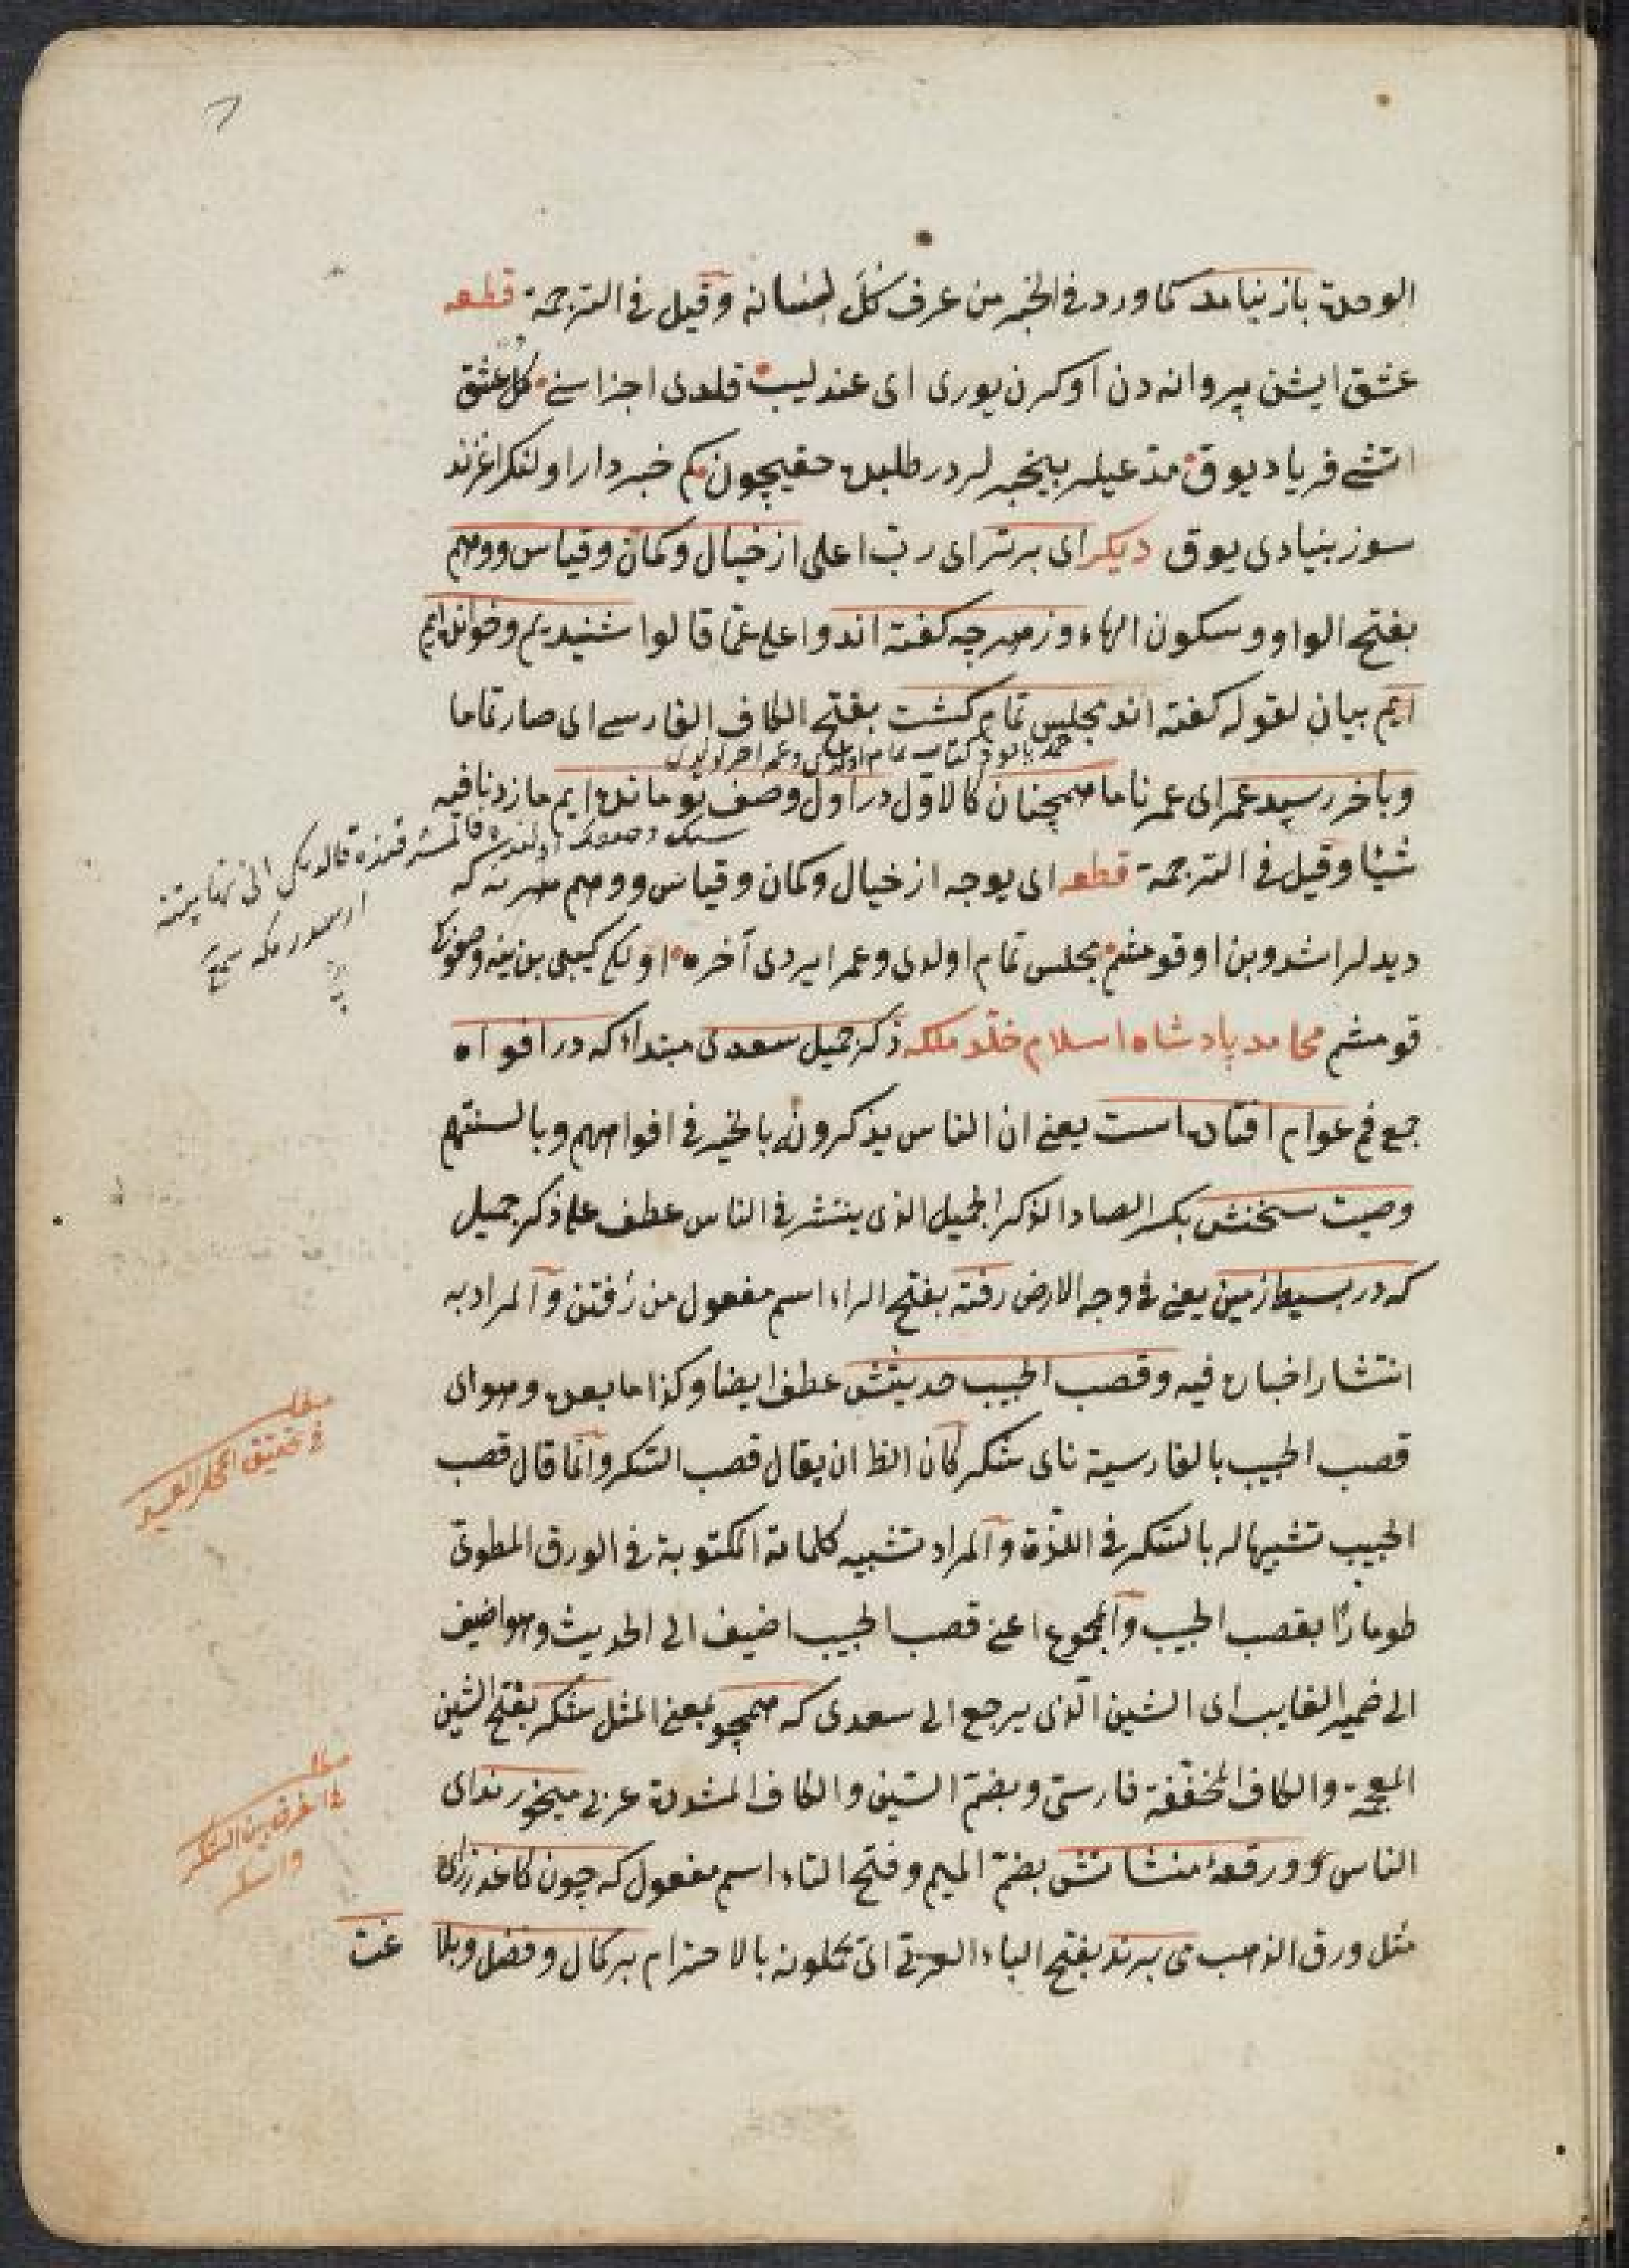 الوحدة باز نیامد كما ورد فى الخبر من عرف كلّ لسانه وقيل فى الترجمة قطعه
عشق ايشن پروانه دن اوكرن يورى اى عندليب قلدى اجزاسنے كل عشق
اتشے فرياد يوق مدّعيلر بيخبر لردر طلبده حقيچون كم خبردار اولنكر اغزند
سوز بنيادى يوق ديكر اى برتر اى ربّ اعلى از خيال وكمان وقياس ووهم
بفتح الواو وسكون الهاء وز هرچه كفته اند واعلى عمّا قالوا شنيديم وخوانده ايم
ايم بيان لقوله كفته اند مجلس تمام كشت بفتح الكاف الفارسے اى صار تماما
وباخر رسيد عمر اى عمرنا ما همچنان كالاوّل در اوّل وصف تو مانده ايم عاجزنا فيه
شيئا وقيل فى الترجمة قطعه اى يوجه از خيال وكمان وقياس ووهم هر نه كه
ديدلر اشدوبن اوقومشم مجلس تمام اولدى وعمر ايردى آخره اولكى كيبى بن ينه وصفوكا
قومشم محامد پادشاه اسلام خلّد ملكه ذكر جميل سعدى مبتداء كه در افواه
جمع فم عوام افتاده است يعنى ان الناس يذكرونه بالخير فى افواههم وبالسنتهم
وصيت سخنش بكسر الصاد الذكر الجميل الذى ينتشر فى الناس عطف على ذكر جميل
كه در بسيط زمين يعنى فى وجه الارض رفته بفتح الراء اسم مفعول من رفتن والمراد به
انتشار اخباره فيه وقصب الجيب حديثش عطف ايضا وكذا ما بعده وهو اى
قصب الجيب بالفارسية ناى شكر كان الظ ان يقال قصب السكر وانّما قال قصب
الجيب تشبيها له بالسكر فى اللذّة والمراد تشبيه كلماته المكتوبة فى الورق المطوىّ
طومارًا بقصب الجيب والمجموع اعنى قصب الجيب اضيف الى الحديث وهو اضيف
الى ضمير الغايب اى الشين الّذى يرجع الى سعدى كه همچو بمعنى المثل شكر بفتح الشين
المعجمة والكاف المخفّفة فارسىّ وبضمّ السّين والكاف المشددة عربى ميخورند اى
الناس ورقعهٔ منشاتش بضمّ الميم وفتح التاء اسم مفعول كه چون كاغد زر اى
مثل ورق الذهب مى برند بفتح الباء العربىّ اى يحملونه بالاحترام بر كمال وفضل وبلا غت
مطلب
فى تحقيق
مطلب
فى الفرق بين الشكر
والسكر